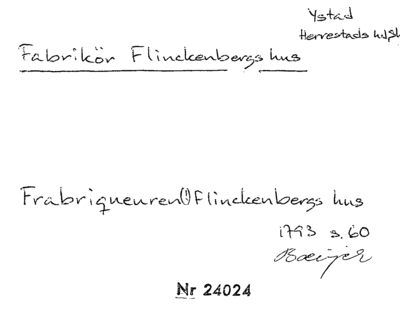 Ystad
Herrestads hd, Sk
Fabrikör Flinckenbergs hus
Frabriqueuren(!) Flinckenbergs hus
1793 s. 60
Nr 24024